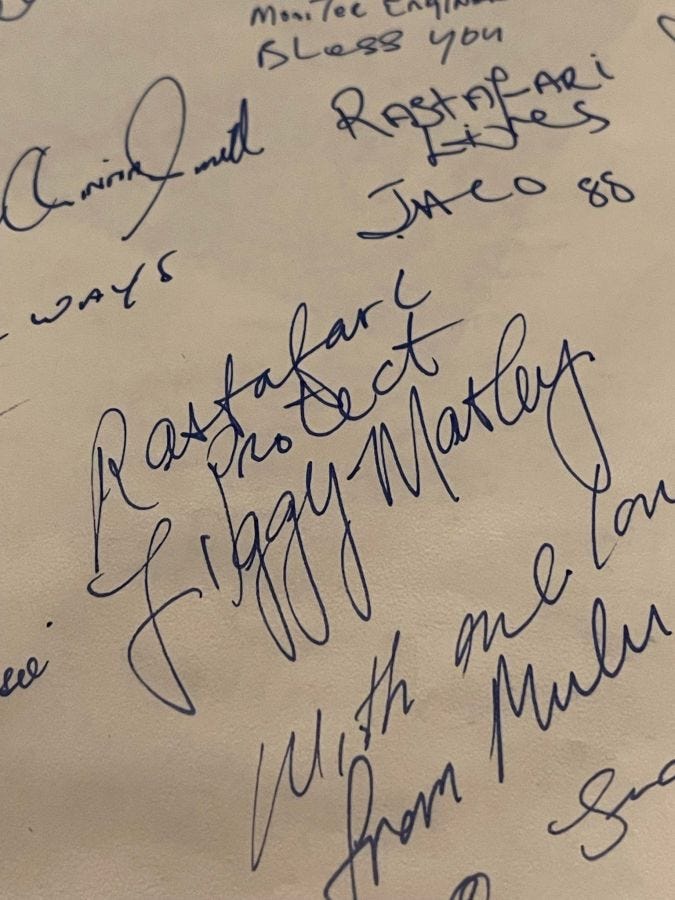 Monitor Engin
Bless you
RASTAFARI
Lives
JACO 88
WAYS
Rastafari
Protect
Ziggy Marley
With one lov
from Mulu